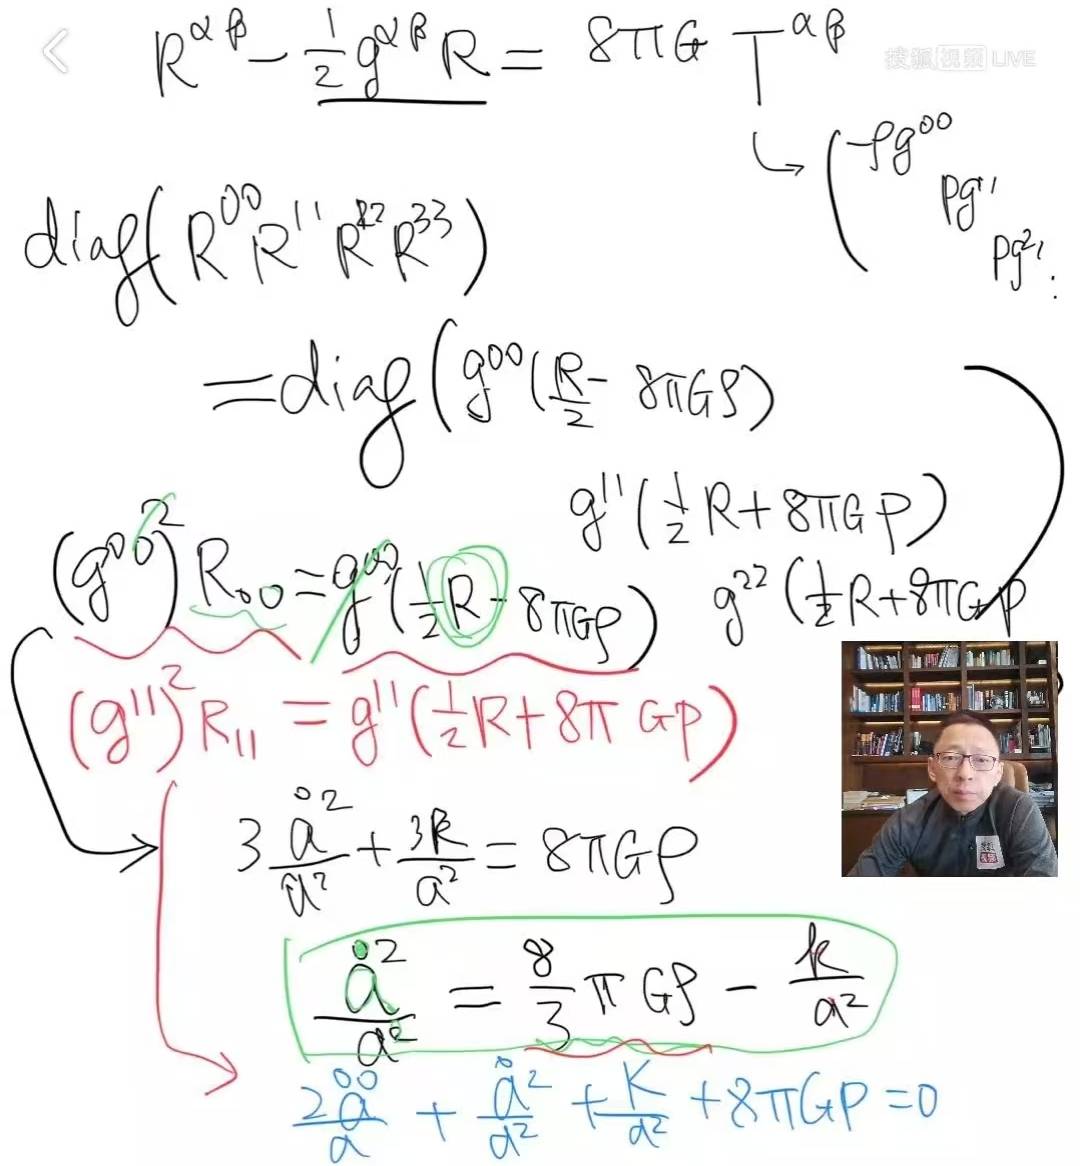 R^{αβ} - \frac{1}{2} g^{αβ} R = 8πG T^{αβ}
搜狐视频 LIVE
-ρg^{00}
pg^{11}
pg^{22}
diag(R^{00} R^{11} R^{22} R^{33})
= diag(g^{00}(\frac{R}{2} - 8πGρ)
g^{11}(\frac{1}{2}R + 8πGp)
(g^{00})^2 R_{00} = g^{00}(\frac{1}{2}R - 8πGρ)
g^{22}(\frac{1}{2}R + 8πGp
(g^{11})^2 R_{11} = g^{11}(\frac{1}{2}R + 8πGp)
3\frac{\dot{a}^2}{a^2} + \frac{3k}{a^2} = 8πGρ
\frac{\dot{a}^2}{a^2} = \frac{8}{3}πGρ - \frac{k}{a^2}
\frac{2\ddot{a}}{a} + \frac{\dot{a}^2}{a^2} + \frac{K}{a^2} + 8πGP = 0